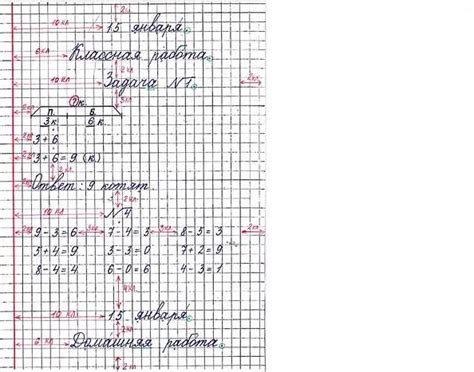 2 кл
10 кл 15 января.
6 кл Классная работа.
2 кл
10 кл Задача №1. 2 кл
3 кл
? к.
П. Б.
2 кл 3 к. 6 к.
2 кл 3 + 6
2 кл 3 + 6 = 9 (к.)
2 кл
Ответ: 9 котят.
2 кл
10 кл №4
2 кл 9 – 3 = 6 3 кл 7 – 4 = 3 3 кл 8 – 5 = 3
5 + 4 = 9 3 – 3 = 0 7 + 2 = 9
8 – 4 = 4 6 – 0 = 6 4 – 3 = 1
4 кл
10 кл 15 января.
2 кл
6 кл Домашняя работа.